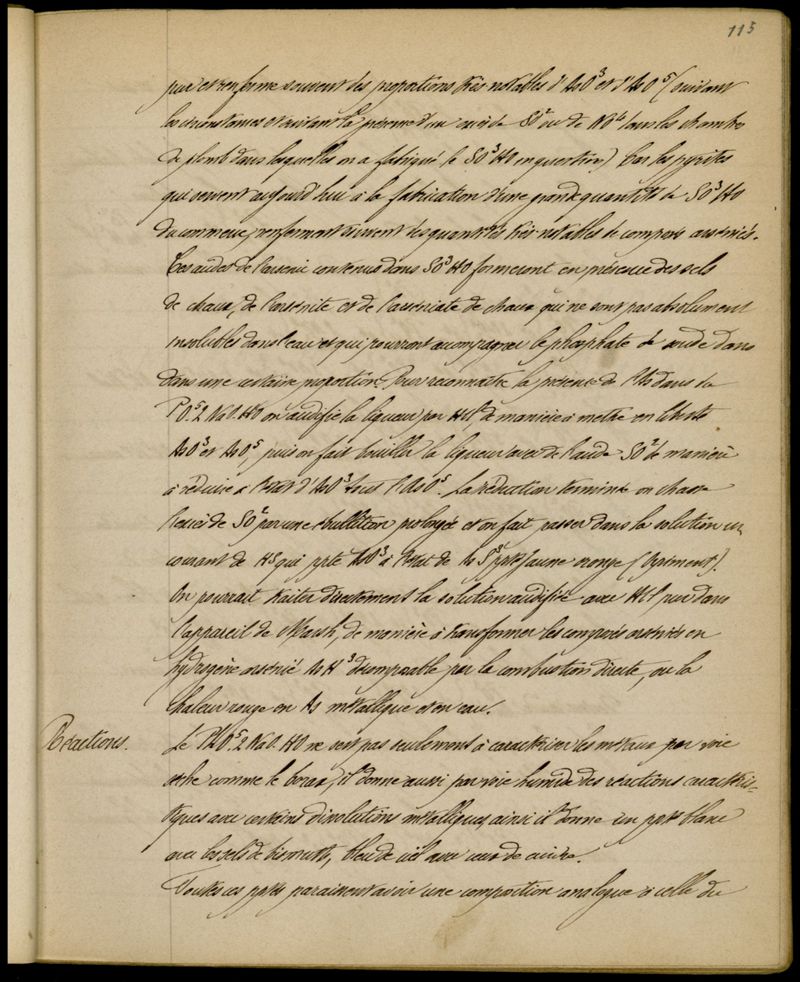 115
pur et renferme souvent des proportions très notables d'AsO³ et d'AsO⁵ (suivant
les circonstances et suivant la présence d'un excès de SO² ou de dans les chambres
de plomb dans lesquelles on a fabriqué le SO³HO en question) Car les pyrites
qui servent aujourd'hui à la fabrication d'une grande quantité de SO³HO
du commerce, renferment souvent des quantités très notables de composés arséniés.
Ces acides de l'arsenic contenus dans SO³HO formeront en présence des sels
de chaux, de l'arsénite et de l'arséniate de chaux qui ne sont pas absolument
insolubles dans l'eau et qui pourront accompagner le phosphate de soude dans
dans une certaine proportion. Pour reconnaître la présence de l'As dans le
PO⁵2NaO.HO on acidifie la liqueur par HCl, de manière à mettre en liberté
AsO³ et AsO⁵, puis on fait bouillir la liqueur avec de l'acide SO² de manière
à réduire à l'état d'AsO³ tout l'AsO⁵. La réduction terminée on chasse
l'excès de SO² par une ébullition prolongée et on fait passer dans la solution un
courant de HS qui ppte AsO³ à l'état de AsS³ ppté jaune orangé (orpiment).
On pourrait traiter directement la solution acidifiée avec HCl pur dans
l'appareil de Marsh, de manière à transformer les composés arséniés en
hydrogène arsénié AsH³ décomposable par la combustion directe, ou la
chaleur rouge en As métallique et en eau.
Réactions.
Le PhO⁵2NaO.HO ne sert pas seulement à caractériser les métaux par voie
sèche comme le borax, il donne aussi par voie humide des réactions caractéris-
tiques avec certaines dissolutions métalliques, ainsi il donne un ppté blanc
avec les sels de bismuth, bleu de ciel avec ceux de cuivre.
Toutes ces pptés paraissent avoir une composition analogue à celle du